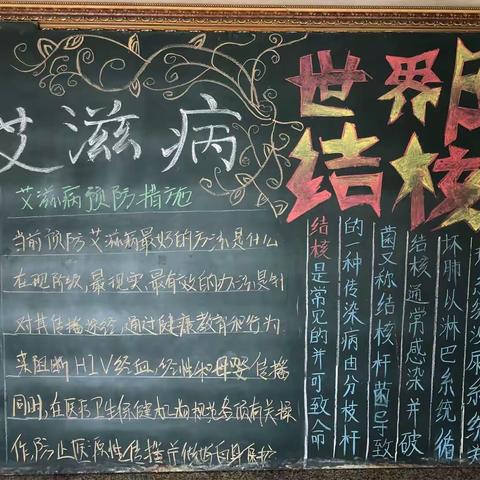 艾滋病
艾滋病预防措施
当前预防艾滋病最好的方法是什么
在现阶段,最现实、最有效的办法是针
对其传播途径,通过健康教育和行为
来阻断HIV经血,经性和母婴传播
同时,在医疗卫生保健机构规范各项有关操
作,防止医源性传播并做好自身医护
世界
结核
结核是常见的并可致命
的一种传染病由分枝杆
菌又称结核杆菌导致
结核通常感染并破
坏肺以淋巴系统循